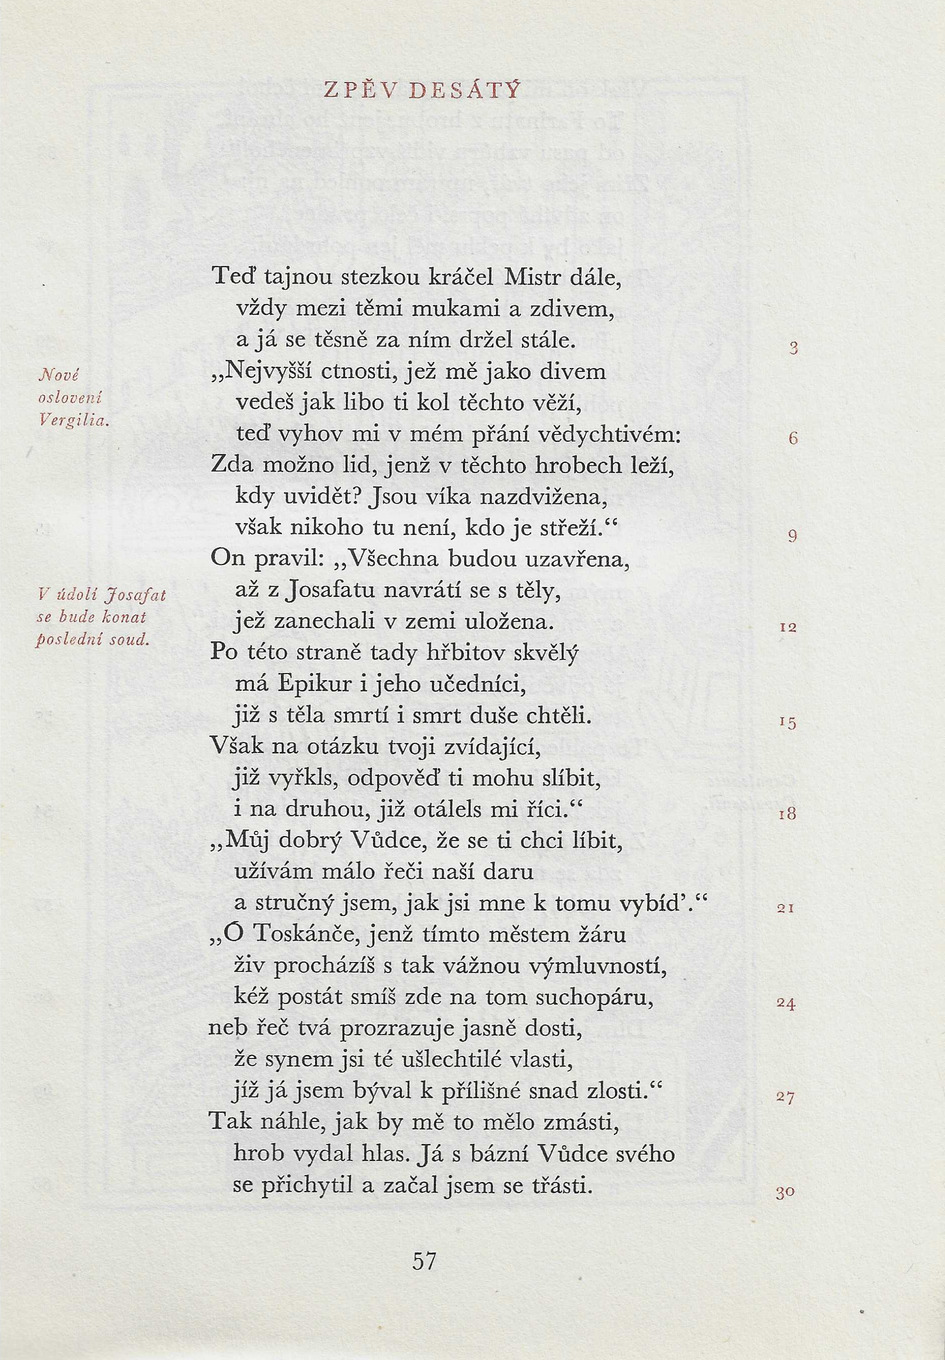 ZPĚV DESÁTÝ
Teď tajnou stezkou kráčel Mistr dále,
vždy mezi těmi mukami a zdivem,
a já se těsně za ním držel stále.
3
Nové
oslovení
Vergilia.
„Nejvyšší ctnosti, jež mě jako divem
vedeš jak libo ti kol těchto věží,
teď vyhov mi v mém přání vědychtivém:
6
Zda možno lid, jenž v těchto hrobech leží,
kdy uvidět? Jsou víka nazdvižena,
však nikoho tu není, kdo je střeží.“
9
On pravil: „Všechna budou uzavřena,
až z Josafatu navrátí se s těly,
jež zanechali v zemi uložena.
12
V údolí Josafat
se bude konat
poslední soud.
Po této straně tady hřbitov skvělý
má Epikur i jeho učedníci,
již s těla smrtí i smrt duše chtěli.
15
Však na otázku tvoji zvídající,
již vyřkls, odpověď ti mohu slíbit,
i na druhou, již otálels mi říci.“
18
„Můj dobrý Vůdce, že se ti chci líbit,
užívám málo řeči naší daru
a stručný jsem, jak jsi mne k tomu vybíd’.“
21
„Ó Toskánče, jenž tímto městem žáru
živ procházíš s tak vážnou výmluvností,
kéž postát smíš zde na tom suchopáru,
24
neb řeč tvá prozrazuje jasně dosti,
že synem jsi té ušlechtilé vlasti,
jíž já jsem býval k přílišné snad zlosti.“
27
Tak náhle, jak by mě to mělo zmásti,
hrob vydal hlas. Já s bázní Vůdce svého
se přichytil a začal jsem se třásti.
30
57